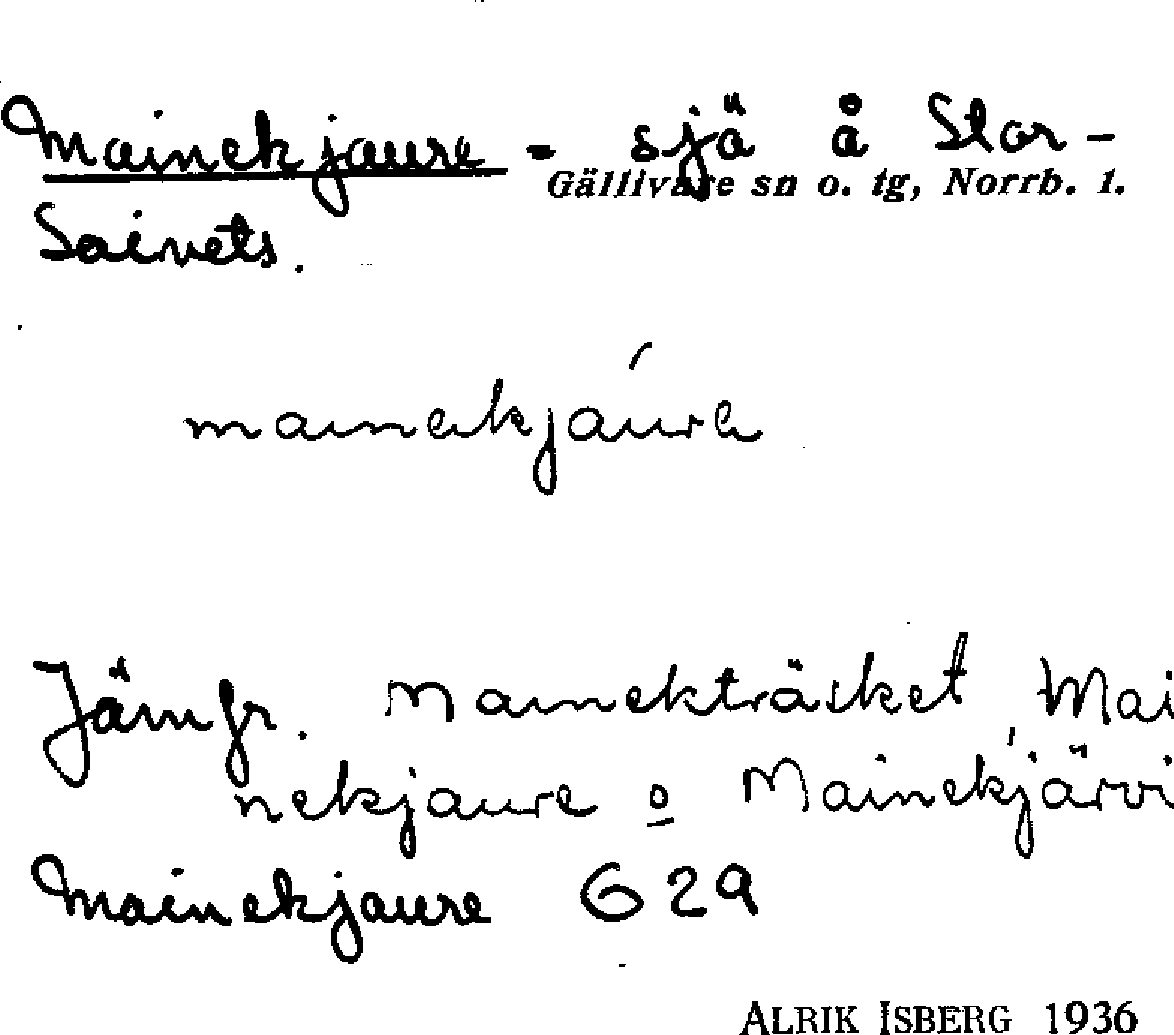 Mainekjaure - sjö å Stor-
Gällivare sn o. tg, Norrb. l.
Saivets.
mainekjaure
Jämfr. Mainekträsket, Mai
nekjaure o Mainekjärvi
Mainekjaure G 29
ALRIK ISBERG 1936